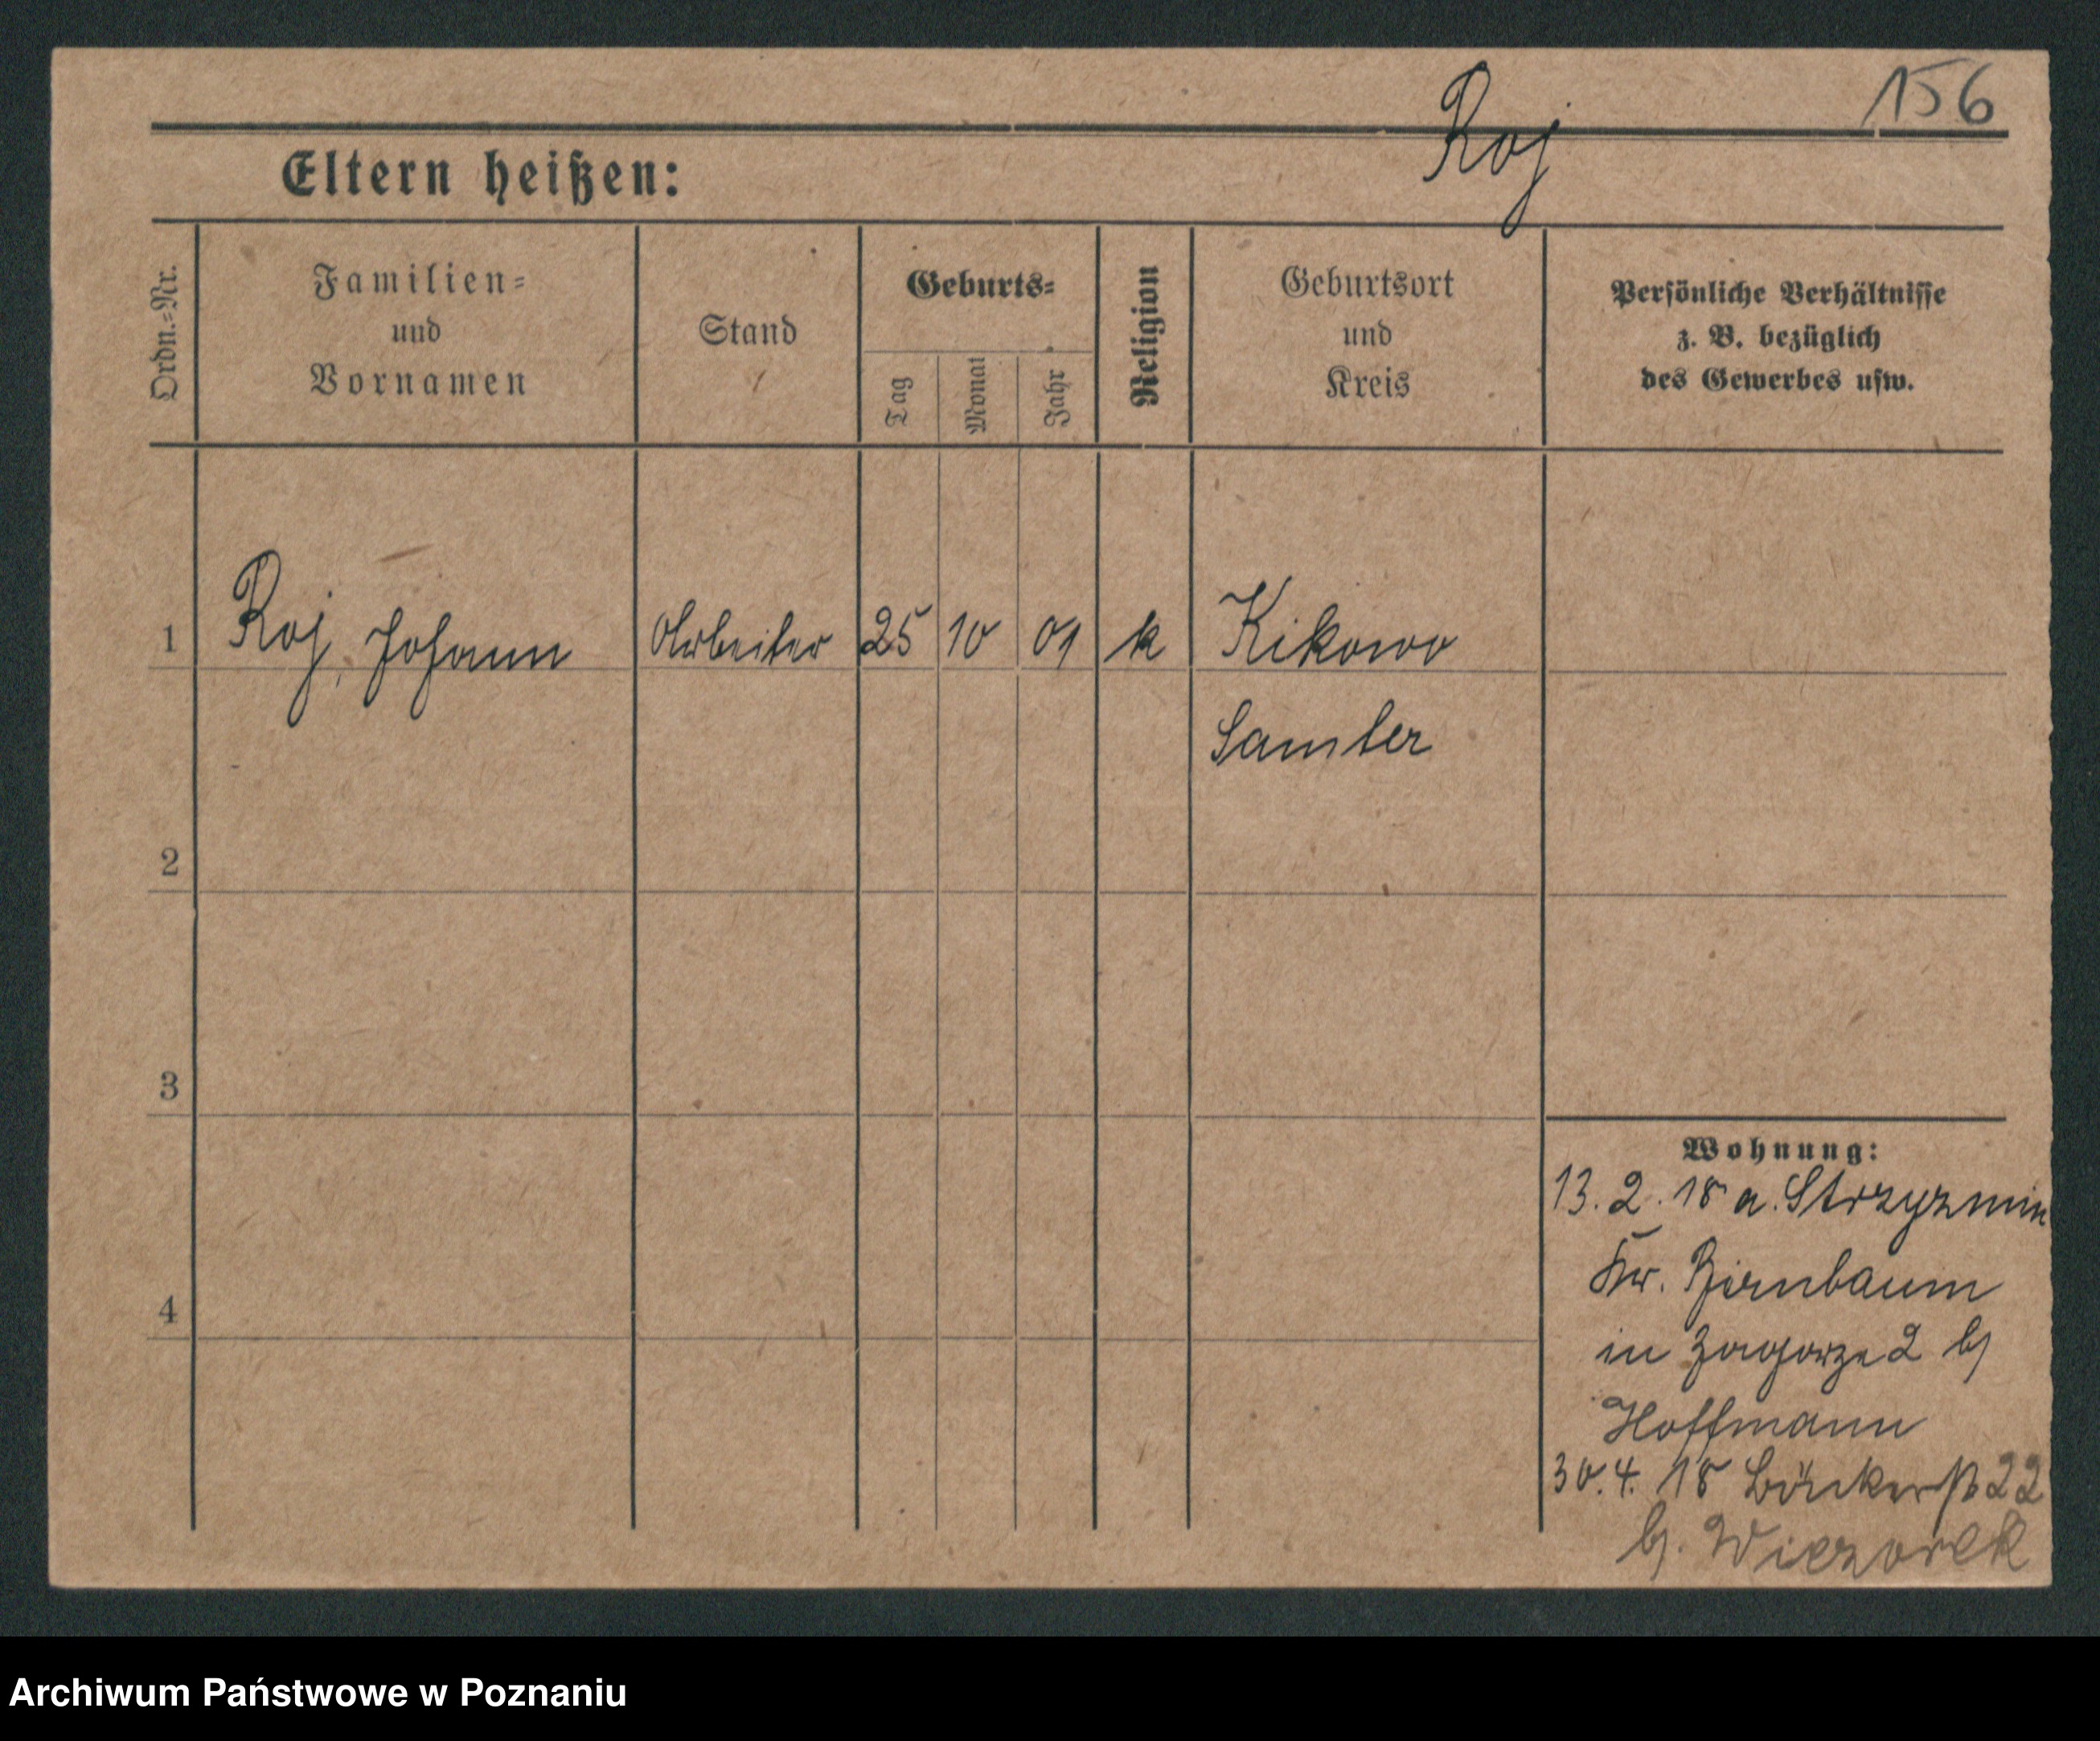 156
Roj
Eltern heißen:
Ordn.=Nr.
Familien=
und
Vornamen
Stand
Geburts=
Tag
Monat
Jahr
Religion
Geburtsort
und
Kreis
Persönliche Verhältnisse
z. B. bezüglich
des Gewerbes usw.
1 Roj, Johann Arbeiter 25 10 01 k Kikowo
Samter
2
3
4
Wohnung:
13. 2. 18 a. Strzyzmin
Kr. Birnbaum
in Zagorze 2 bj
Hoffmann
30. 4. 18 Bäckerstr 22
bj. Wiezorek
Archiwum Państwowe w Poznaniu